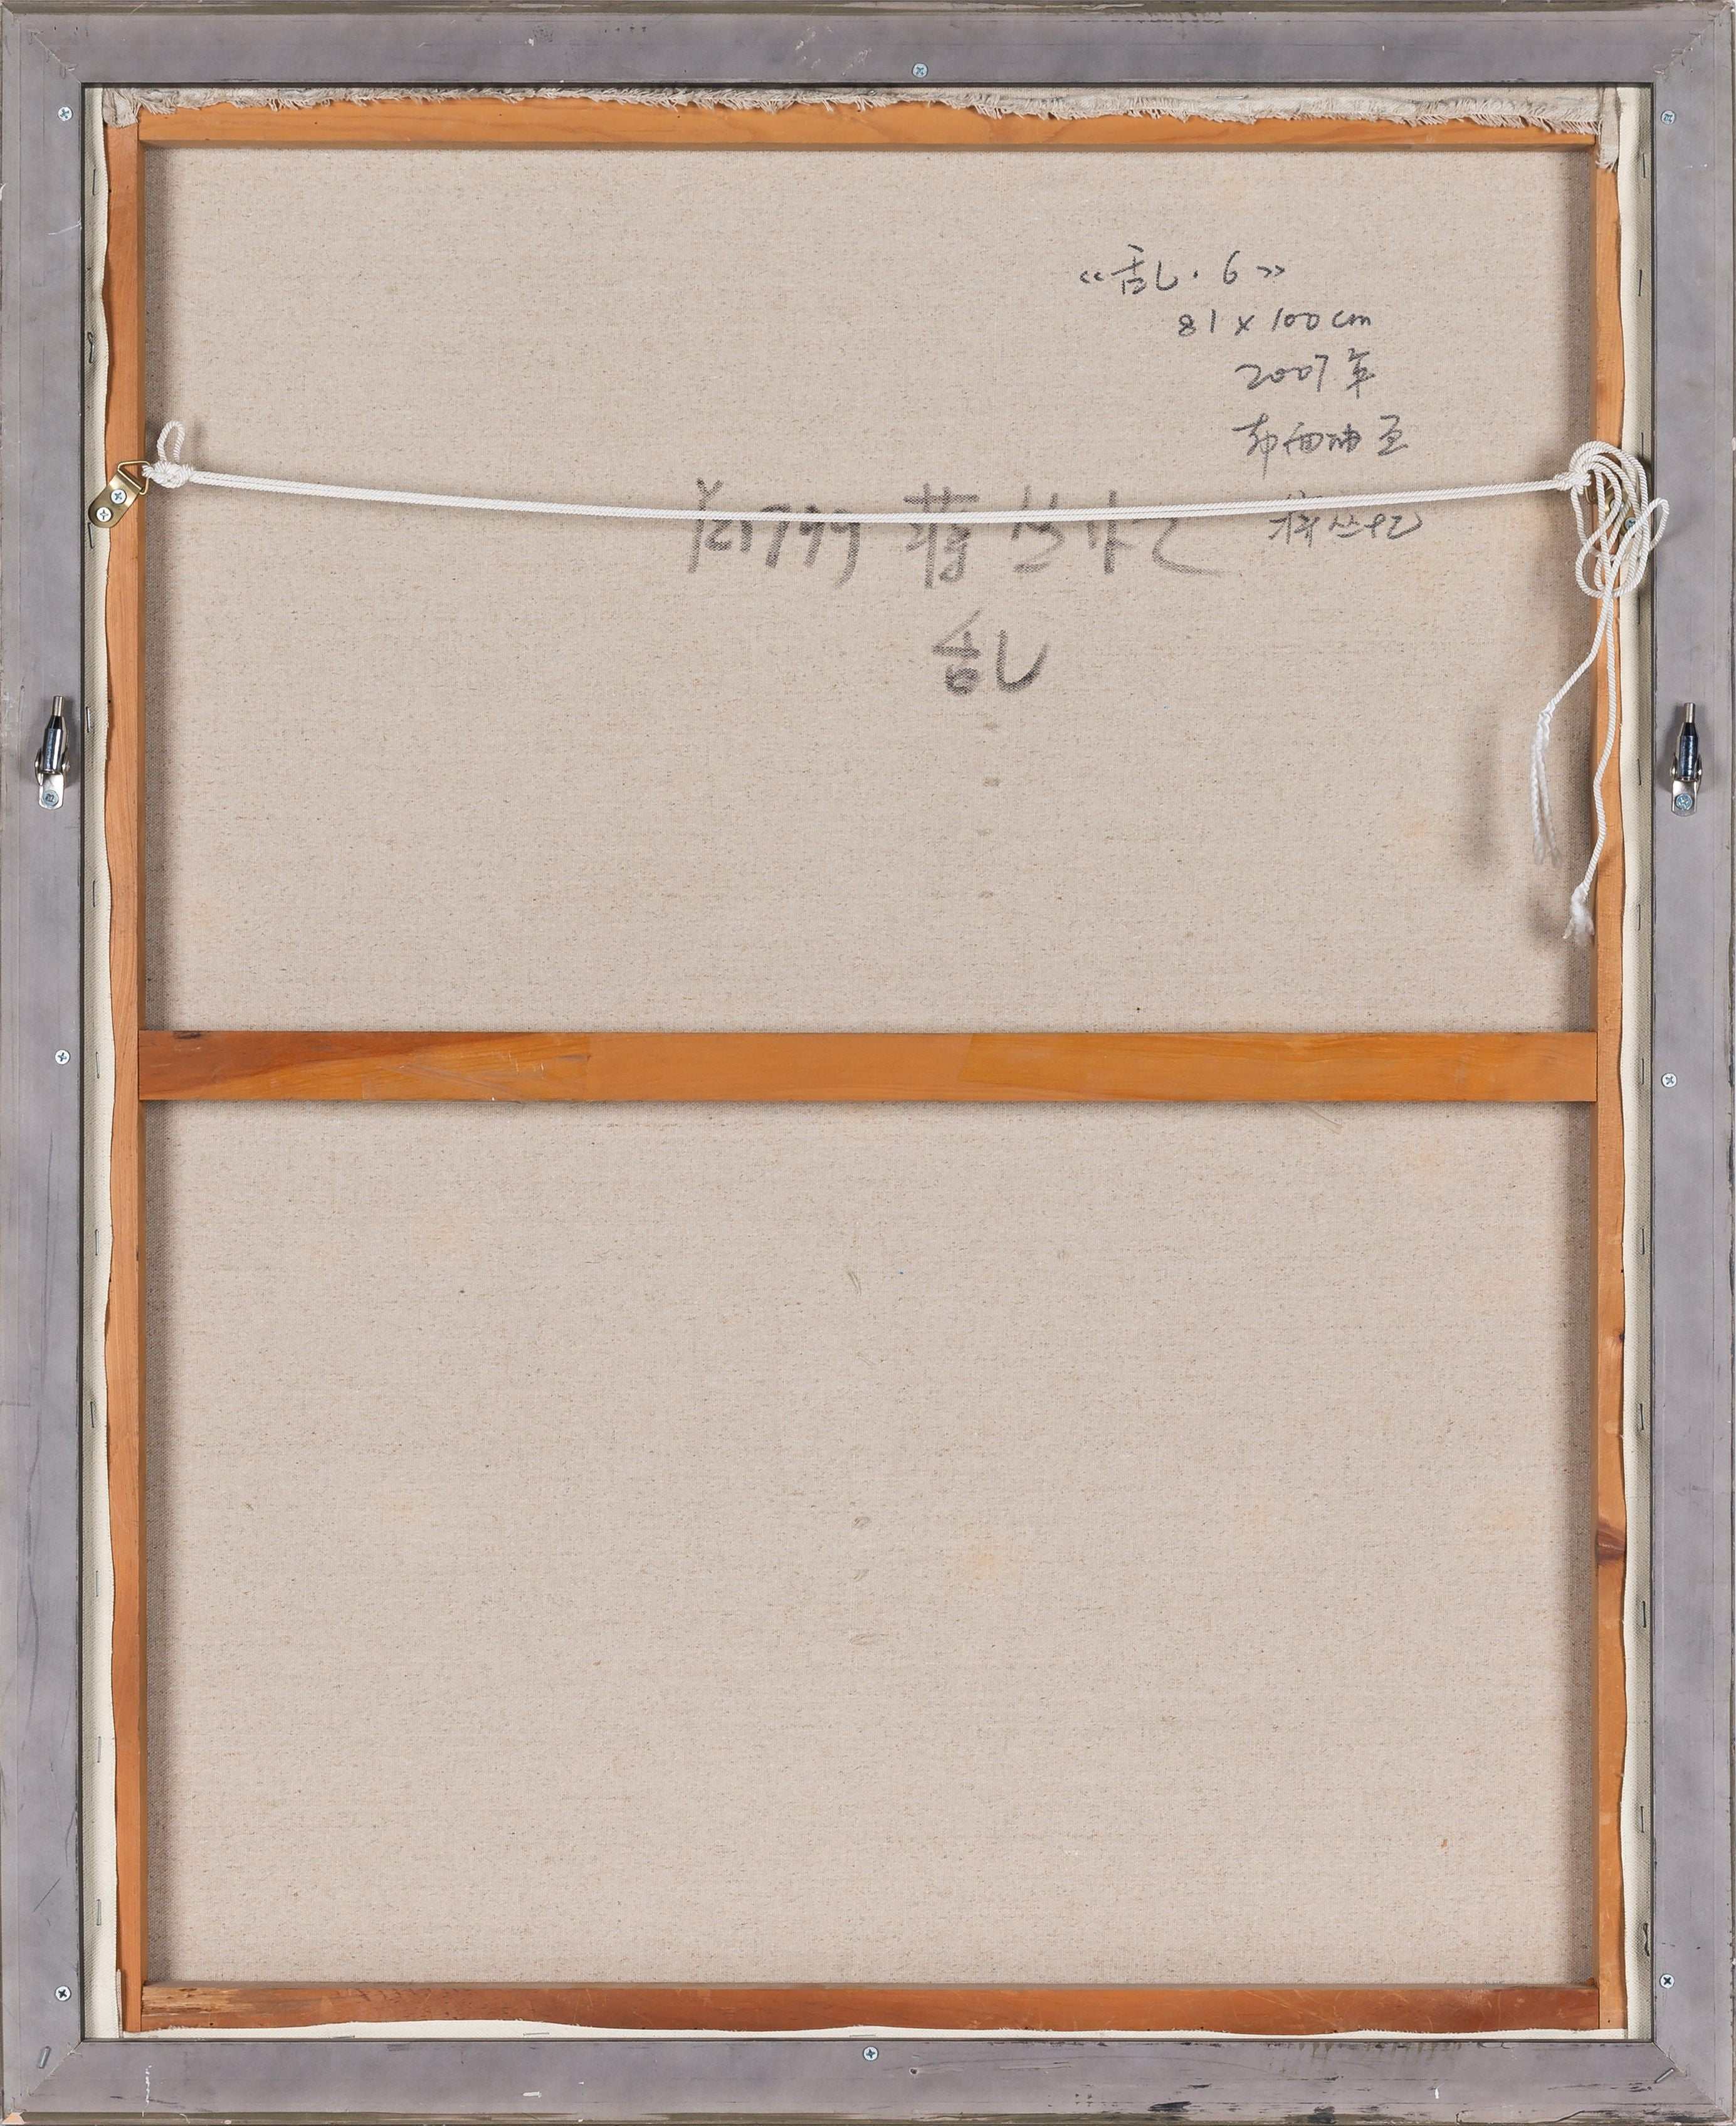 《乱·6》
81 x 100 cm
2007年
布面油画
蒋丛忆
蒋丛忆
乱